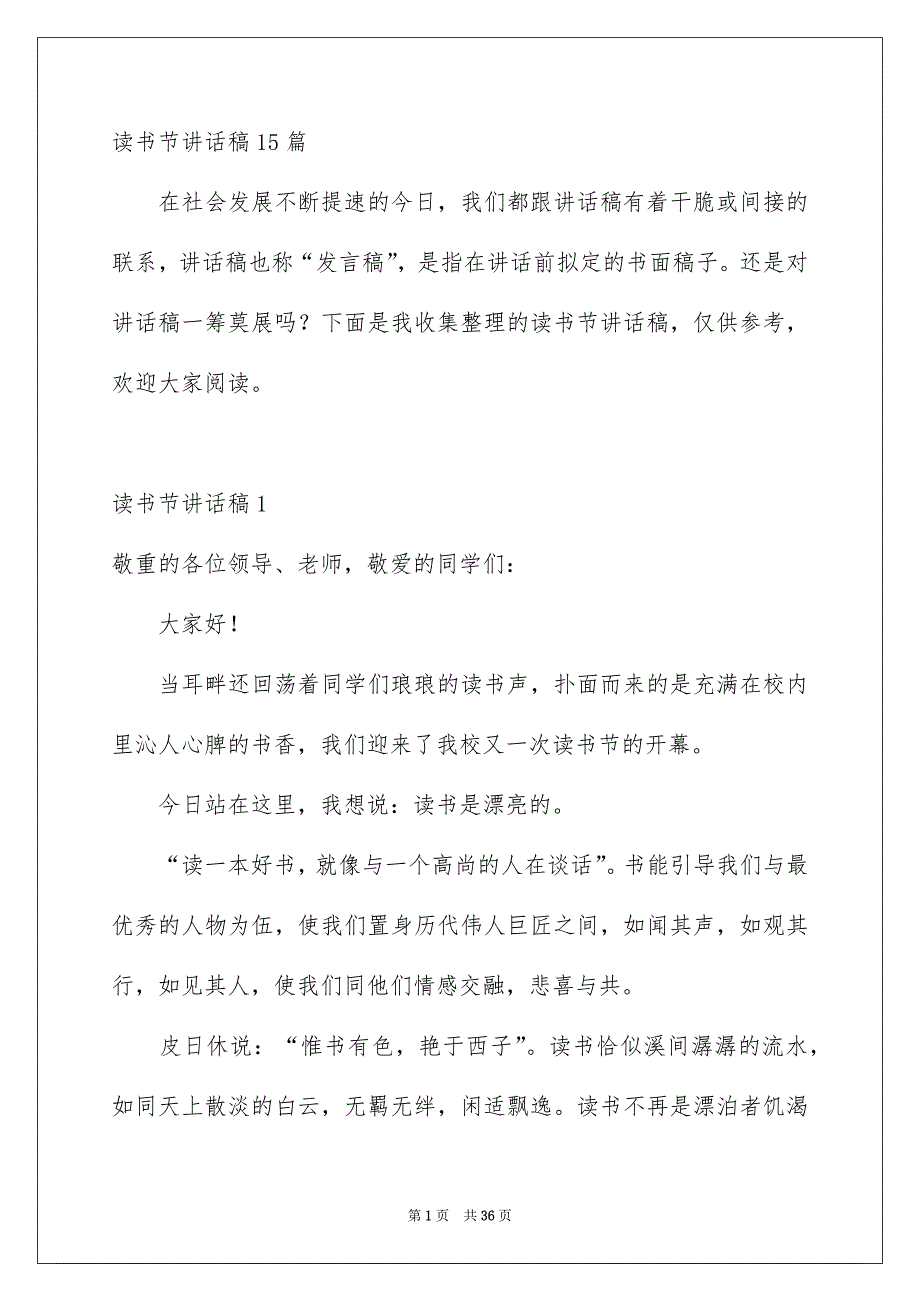 读书节讲话稿15篇
在社会发展不断提速的今日，我们都跟讲话稿有着干脆或间接的
联系，讲话稿也称“发言稿”，是指在讲话前拟定的书面稿子。还是对
讲话稿一筹莫展吗？下面是我收集整理的读书节讲话稿，仅供参考，
欢迎大家阅读。
读书节讲话稿1
敬重的各位领导、老师，敬爱的同学们：
大家好！
当耳畔还回荡着同学们琅琅的读书声，扑面而来的是充满在校内
里沁人心脾的书香，我们迎来了我校又一次读书节的开幕。
今日站在这里，我想说：读书是漂亮的。
“读一本好书，就像与一个高尚的人在谈话”。书能引导我们与最
优秀的人物为伍，使我们置身历代伟人巨匠之间，如闻其声，如观其
行，如见其人，使我们同他们情感交融，悲喜与共。
皮日休说：“惟书有色，艳于西子”。读书恰似溪间潺潺的流水，
如同天上散淡的白云，无羁无绊，闲适飘逸。读书不再是漂泊者饥渴
第1页 共36页